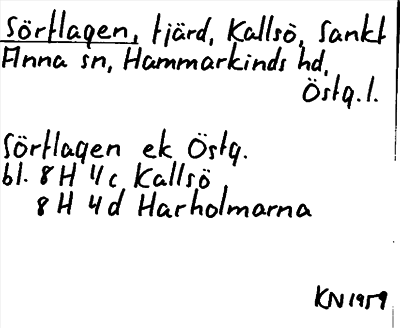 Sörflagen, fjärd, Kallsö, Sankt
Anna sn, Hammarkinds hd,
Östg.l.
Sörflagen ek Östg.
bl. 8H 4c Kallsö
8H 4d Harholmarna
KN1959